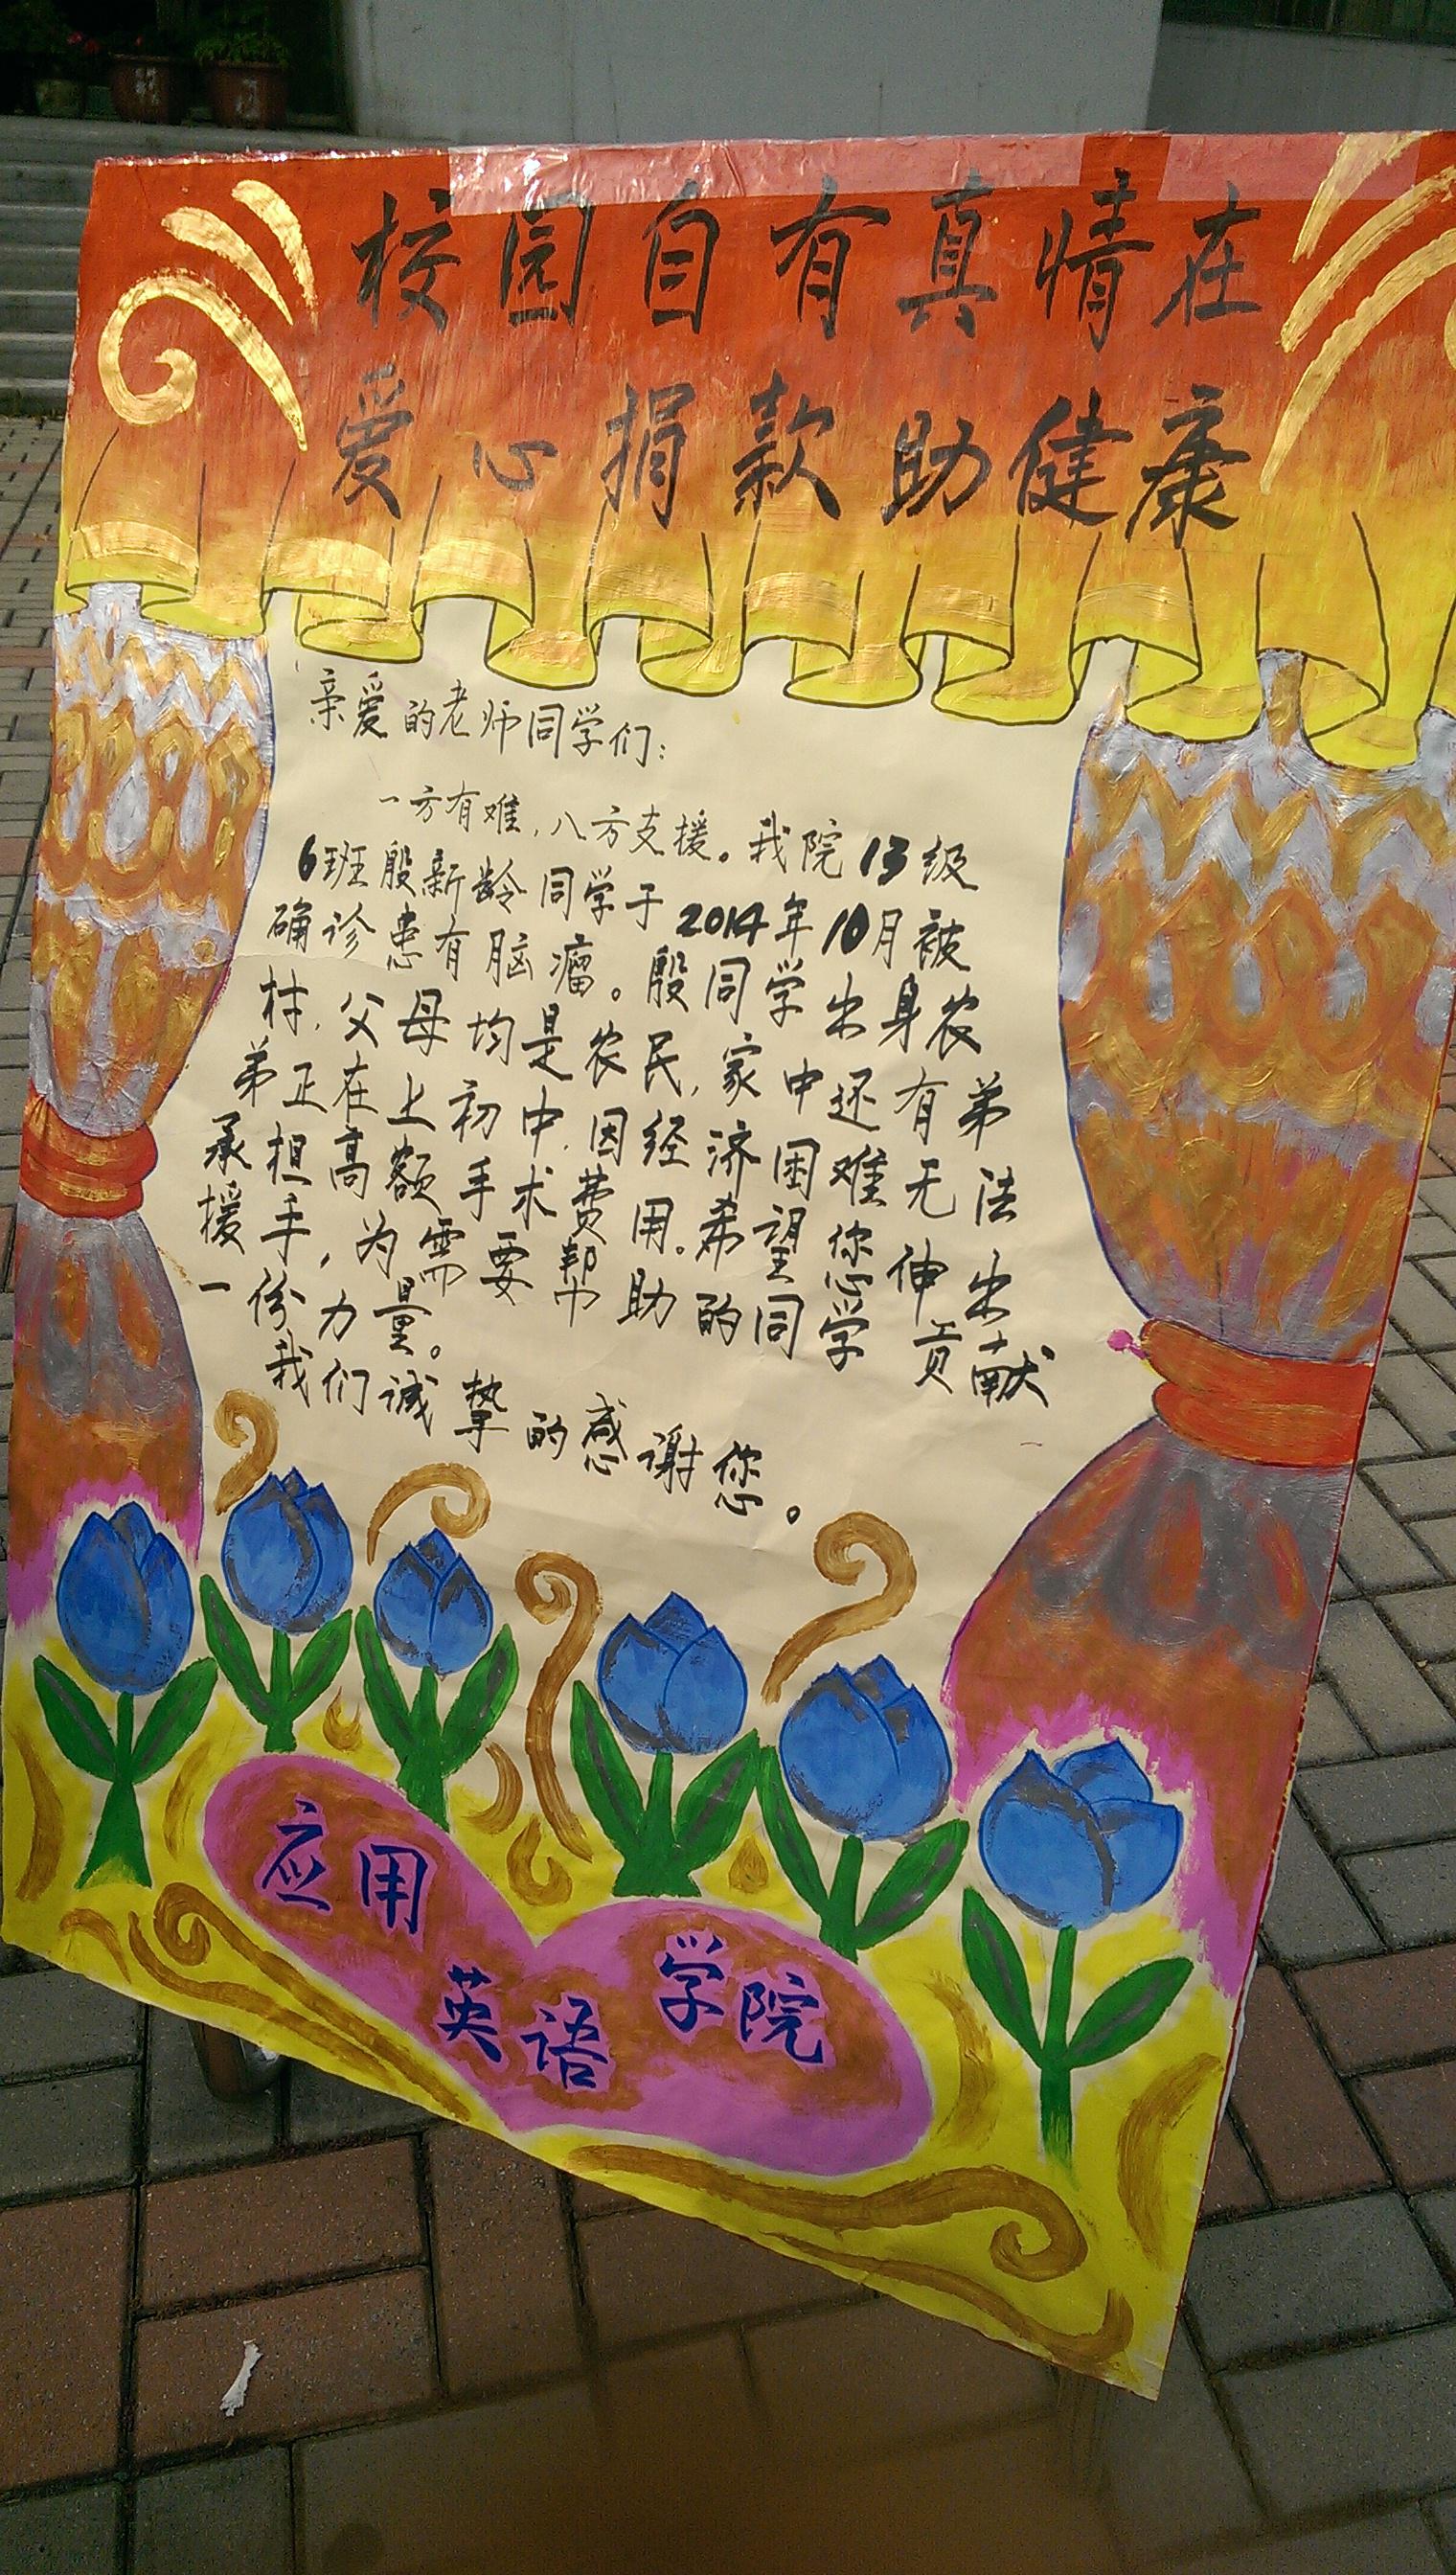 校园自有真情在
爱心捐款助健康
亲爱的老师同学们:
一方有难,八方支援。我院13级
6班殷新龄同学于2014年10月被
确诊患有脑瘤。殷同学出身农
村,父母均是农民,家中还有弟
弟正在上初中,因经济困难无法
承担高额手术费用。希望您伸出
援手,为需要帮助的同学贡献
一份力量。
我们诚挚的感谢您。
应用
英语学院